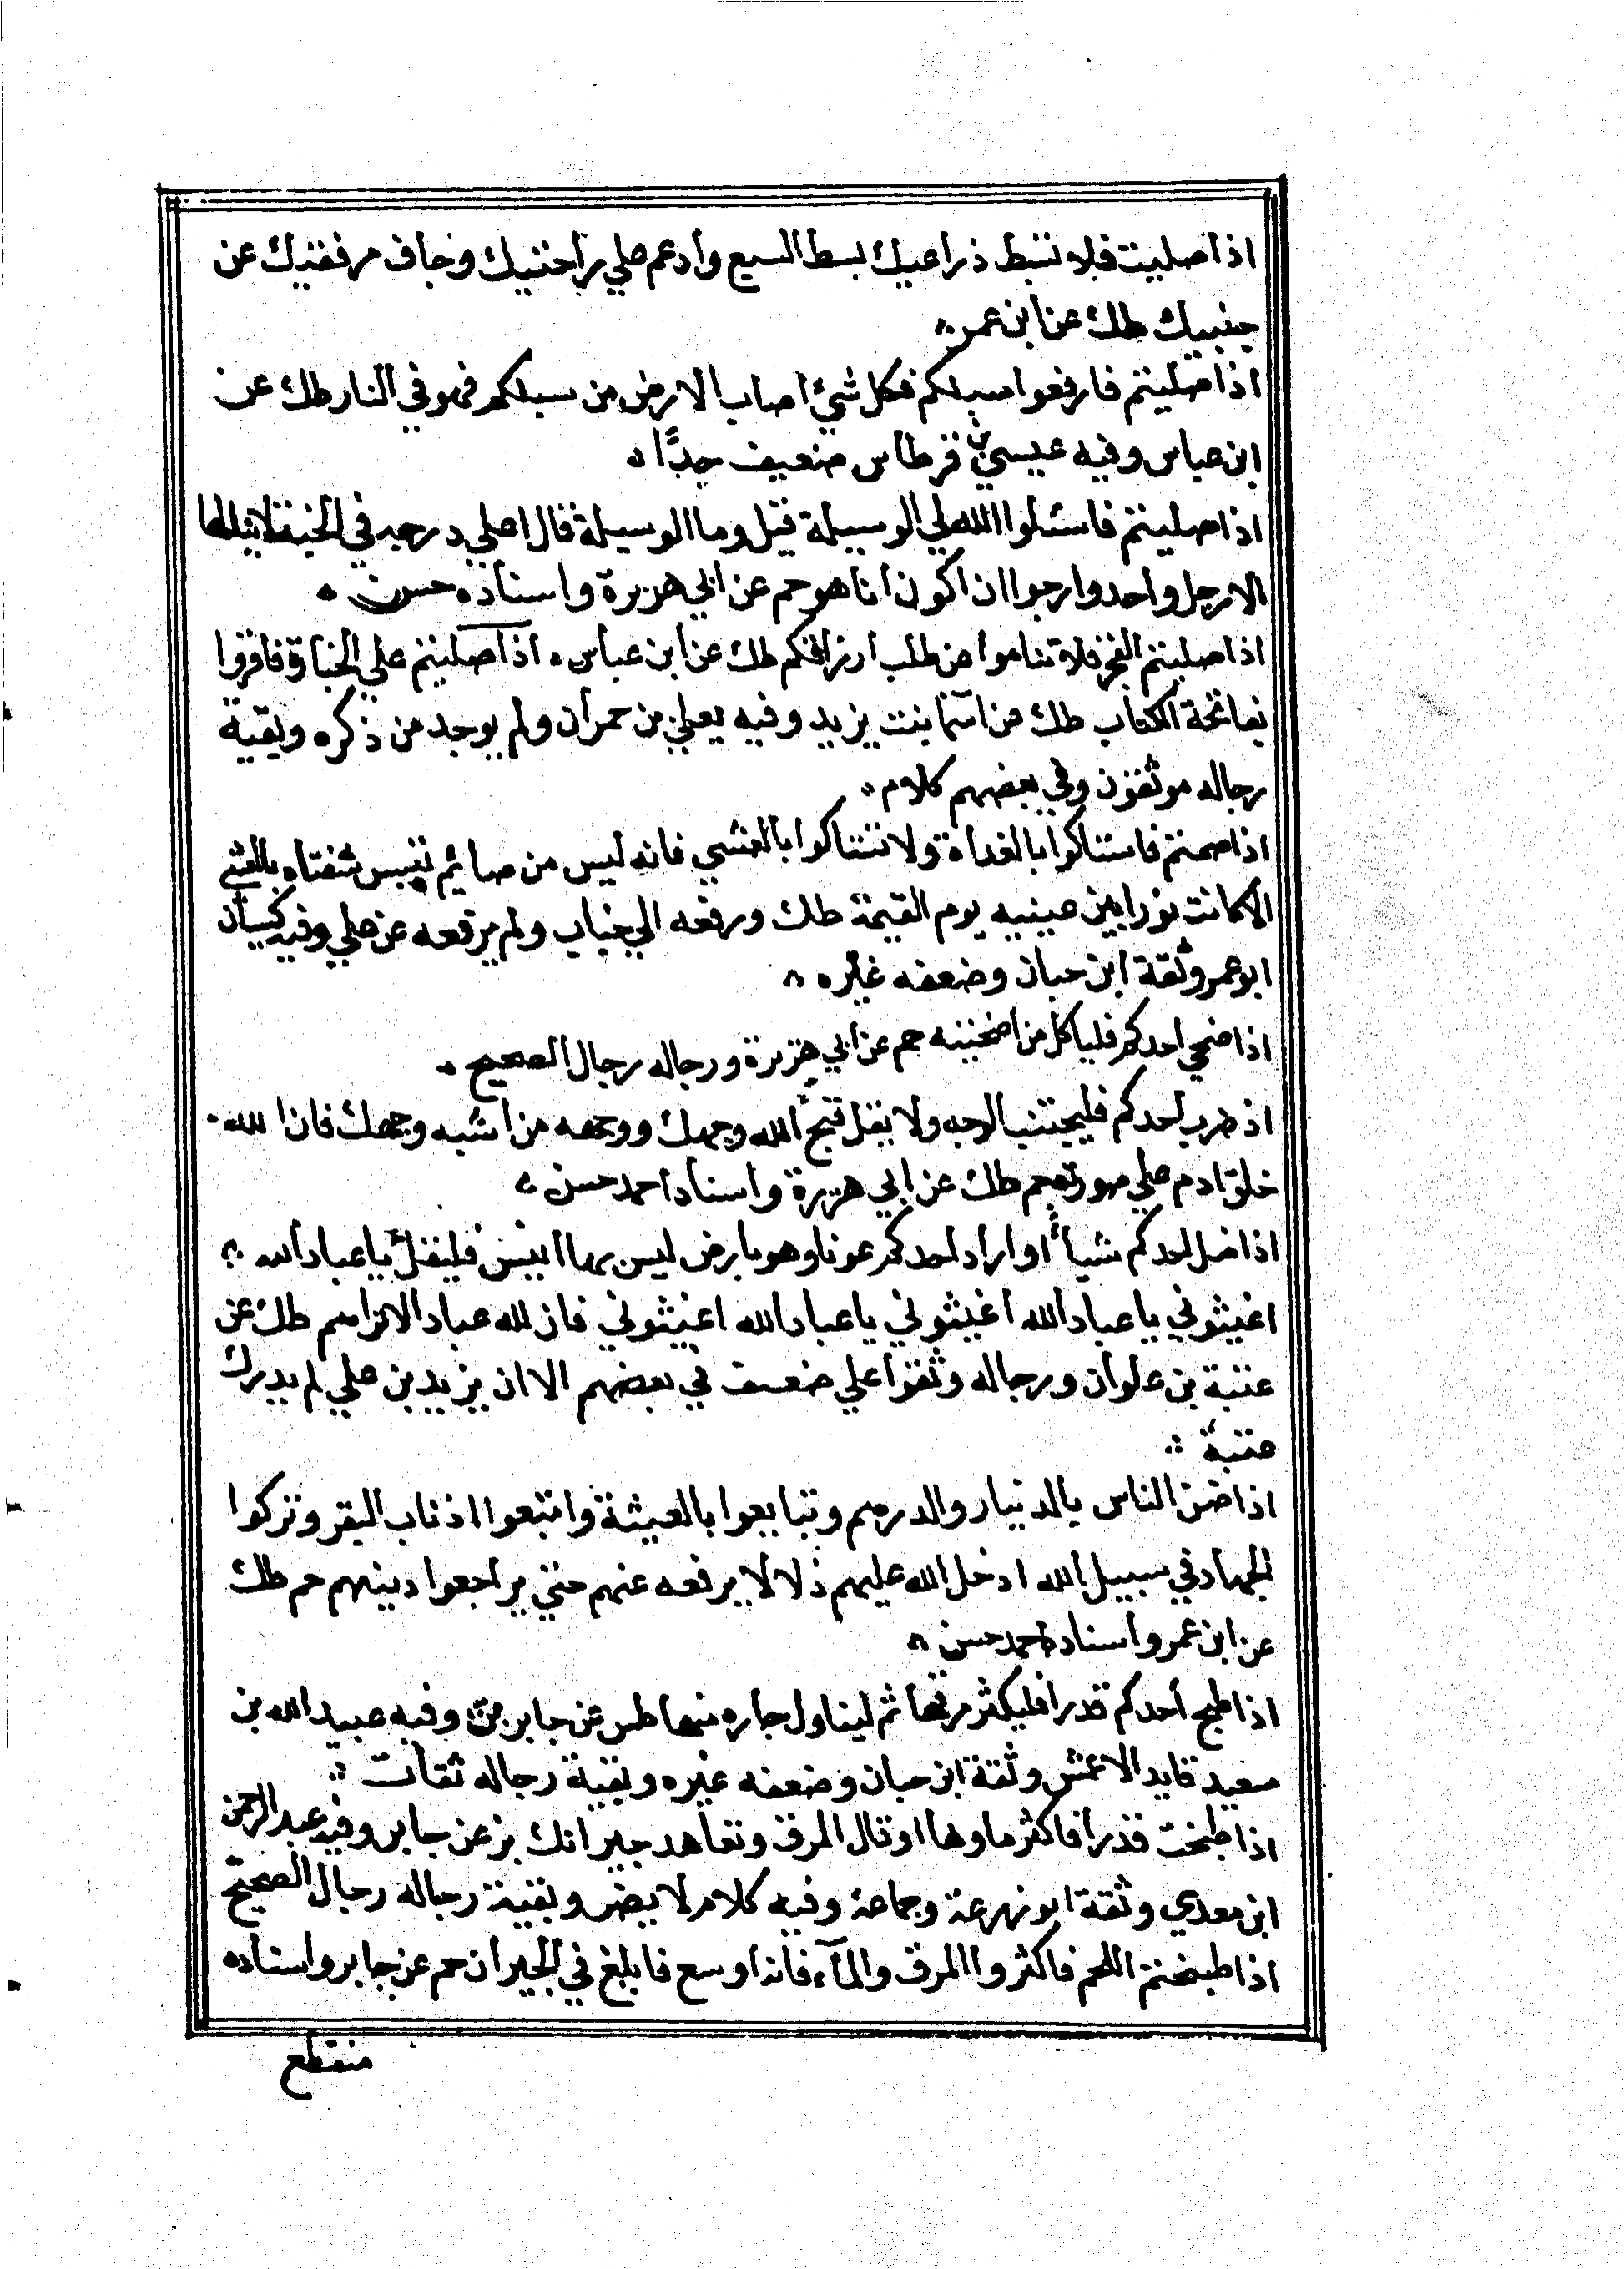 اذا صليت فلا تبسط ذراعيك بسط السبع وادعم علي راحتيك وجاف مرفقيك عن
جنبيك طك عن ابن عمر
اذا صليتم فارفعوا سبلكم فكل شيء اصاب الارض من سبلكم فهو في النار طك عن
ابن عباس وفيه عيسي بن قرطاس ضعيف جدًا
اذا صليتم فاسئلوا الله لي الوسيلة قيل وما الوسيلة قال اعلي درجه في الجنة لا ينالها
الا رجل واحد وارجوا ان اكون انا هو حم عن ابي هريرة واسناده حسن
اذا صليتم الفجر فلا تناموا عن طلب ارزاقكم طك عن ابن عباس اذا صليتم علي الجنازة فاقروا
بفاتحة الكتاب طك عن اسما بنت يزيد وفيه يعلي بن حمران ولم يوجد من ذكره وبقية
رجاله موثقون وفي بعضهم كلام
اذا صمتم فاستاكوا بالغداة ولا تستاكوا بالعشي فانه ليس من صائم تيبس شفتاه بالعشي
الا كانت نورا بين عينيه يوم القيمة طك ورفعه الي خباب ولم يرفعه عن علي وفيه كيسان
ابو عمر وثقة ابن حبان وضعفه غيره
اذا ضحي احدكم فلياكل من اضحيته حم عن ابي هريرة ورجاله رجال الصحيح
اذ ضرب احدكم فليجتنب الوجه ولا يقل قبح الله وجهك ووجه من اشبه وجهك فان الله
خلق ادم علي صورته حم طك عن ابي هريرة واسناد احمد حسن
اذا ضل احدكم شيأ او اراد احدكم عونا وهو بارض ليس بها انيس فليقل يا عباد الله
اغيثوني يا عباد الله اغيثوني يا عباد الله اغيثوني فان لله عباد الا نراهم طك عن
عتبة بن علوان ورجاله وثقوا علي ضعف في بعضهم الا ان يزيد بن علي لم يدرك
عتبة
اذا ضن الناس بالدينار والدرهم وتبايعوا بالعينة واتبعوا اذناب البقر وتركوا
الجهاد في سبيل الله ادخل الله عليهم ذلا لا يرفعه عنهم حتي يراجعوا دينهم حم طك
عن ابن عمر واسناد احمد حسن
اذا طبخ احدكم قدرا فليكثر مرقها ثم ليناول جاره منها طس عن جابر وفيه عبيد الله بن
سعيد قايد الاعمش وثقة ابن حبان وضعفه غيره وبقية رجاله ثقات
اذا طبخت قدرا فاكثر ماوها او قال المرق وتعاهد جيرانك بز عن جابر وفيه عبد الرحمن
ابن معدي وثقة ابو زرعة وجماعة وفيه كلام لا يضر وبقية رجاله رجال الصحيح
اذا طبختم اللحم فاكثروا المرق والمآء فانه اوسع فابلغ في الجيران حم عن جابر واسناده
منقطع